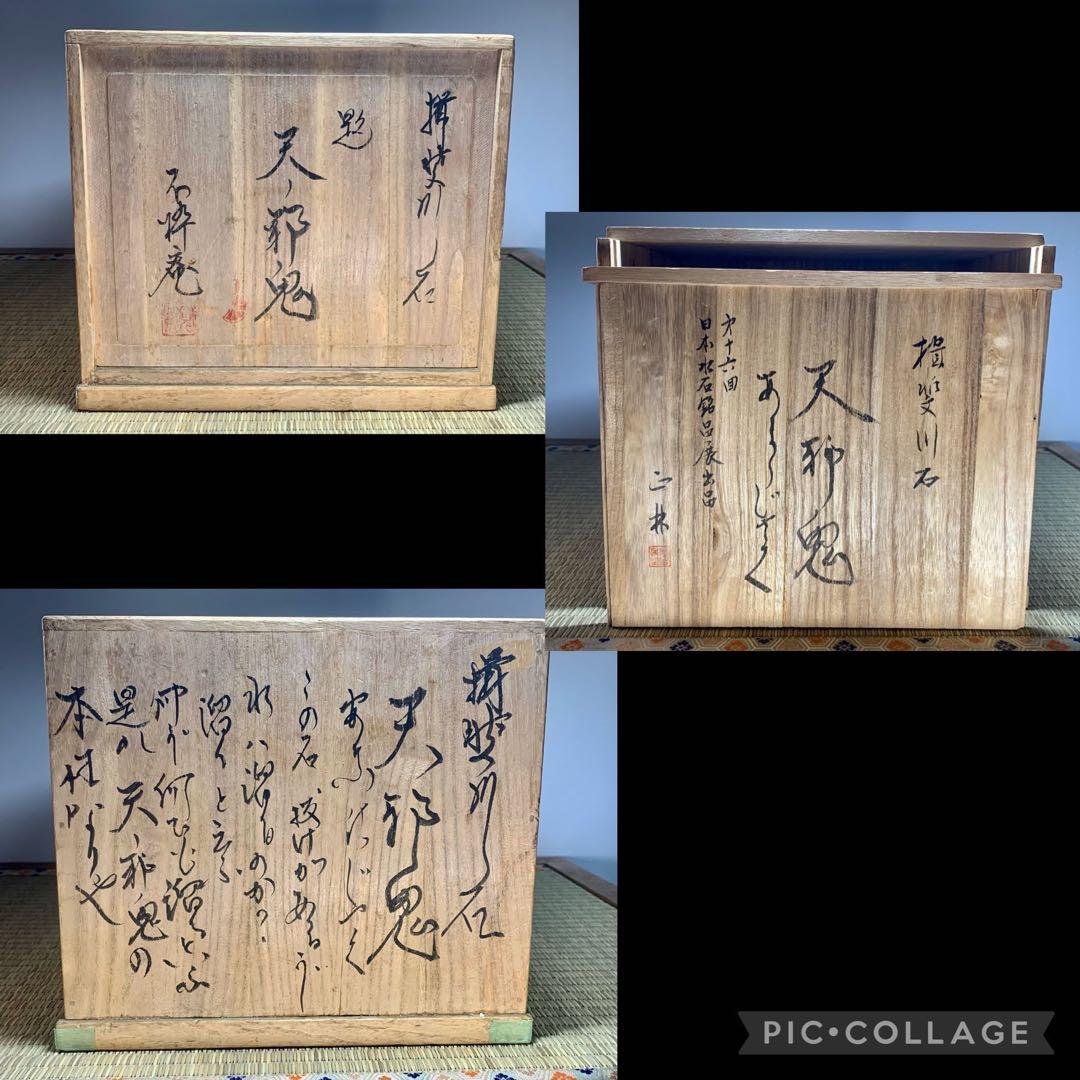 揖斐川石
題
天ノ邪鬼
石粋庵
揖斐川石
天邪鬼
あまのじゃく
第十六回
日本水石銘品展出品
正林
揖斐川石
天邪鬼
あまのじゃく
この石、抜けがあるが
水ハ溜るのか?
溜ると云ふ
是が天ノ邪鬼の
本性なりや
PIC•COLLAGE